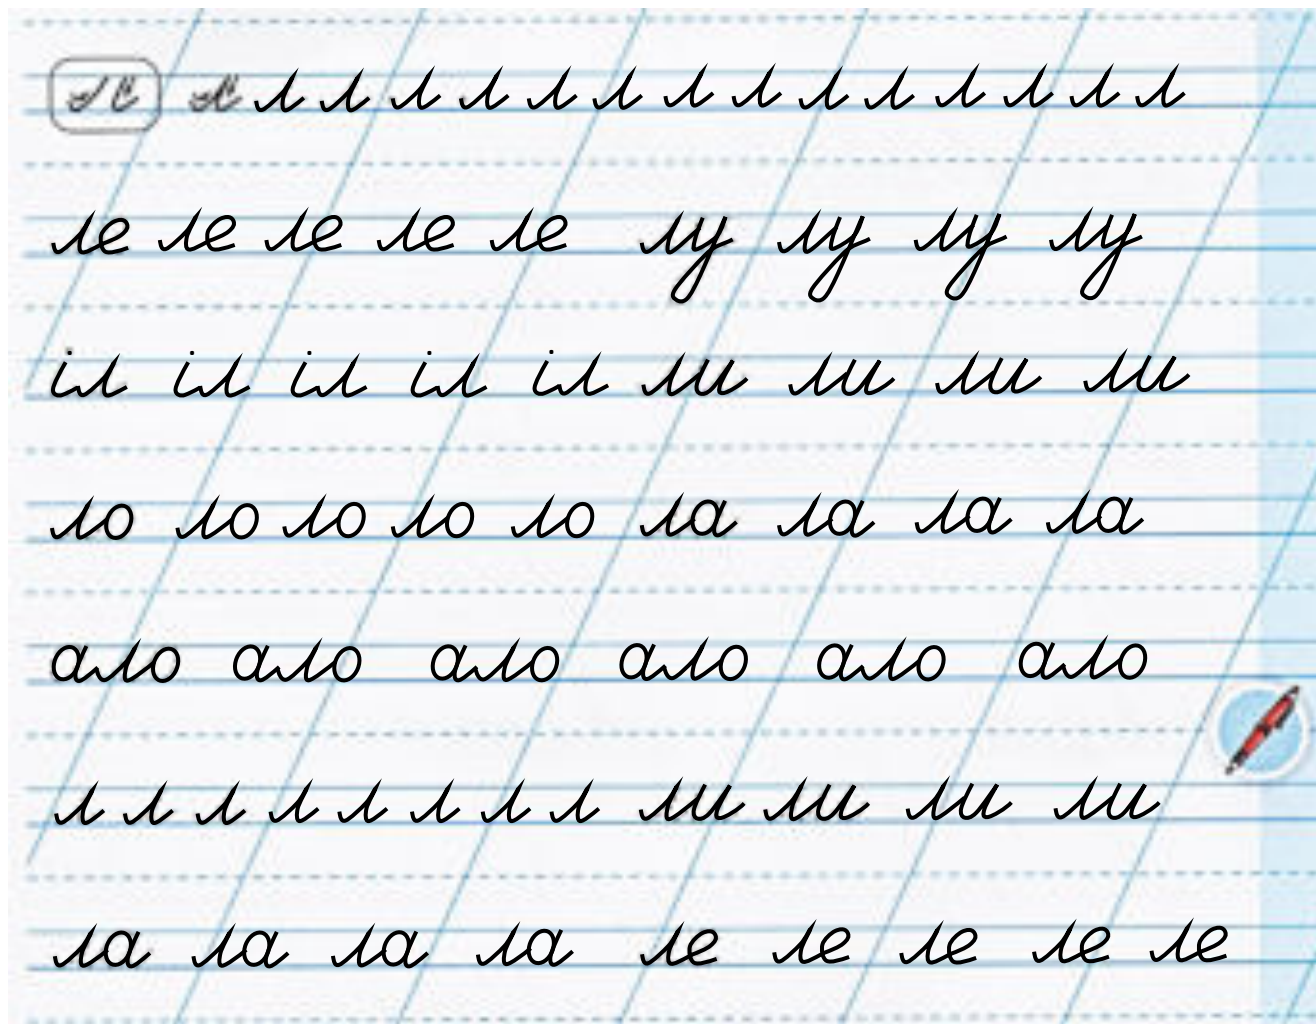 л л л л л л л л л л л л л л
ле ле ле ле ле лу лу лу лу
іл іл іл іл іл ли ли ли ли
ло ло ло ло ло ла ла ла ла
ало ало ало ало ало ало
л л л л л л л л ли ли ли ли
ла ла ла ла ле ле ле ле ле